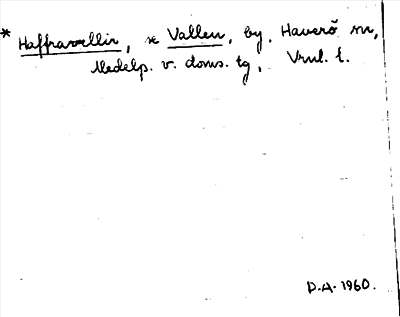 * Haffravellir, se Vallen, by. Haverö sn,
Medelp. v. doms. tg, Vrnl. l.
D.A. 1960.